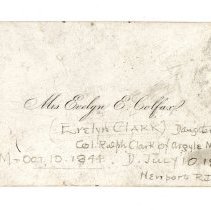 Mrs Evelyn E. Colfax
(Evelyn CLARK) Daughte
Col. Ralph Clark of Argyle
M-Oct. 10. 1844. D. JULY 10. 1
Newport R.I.